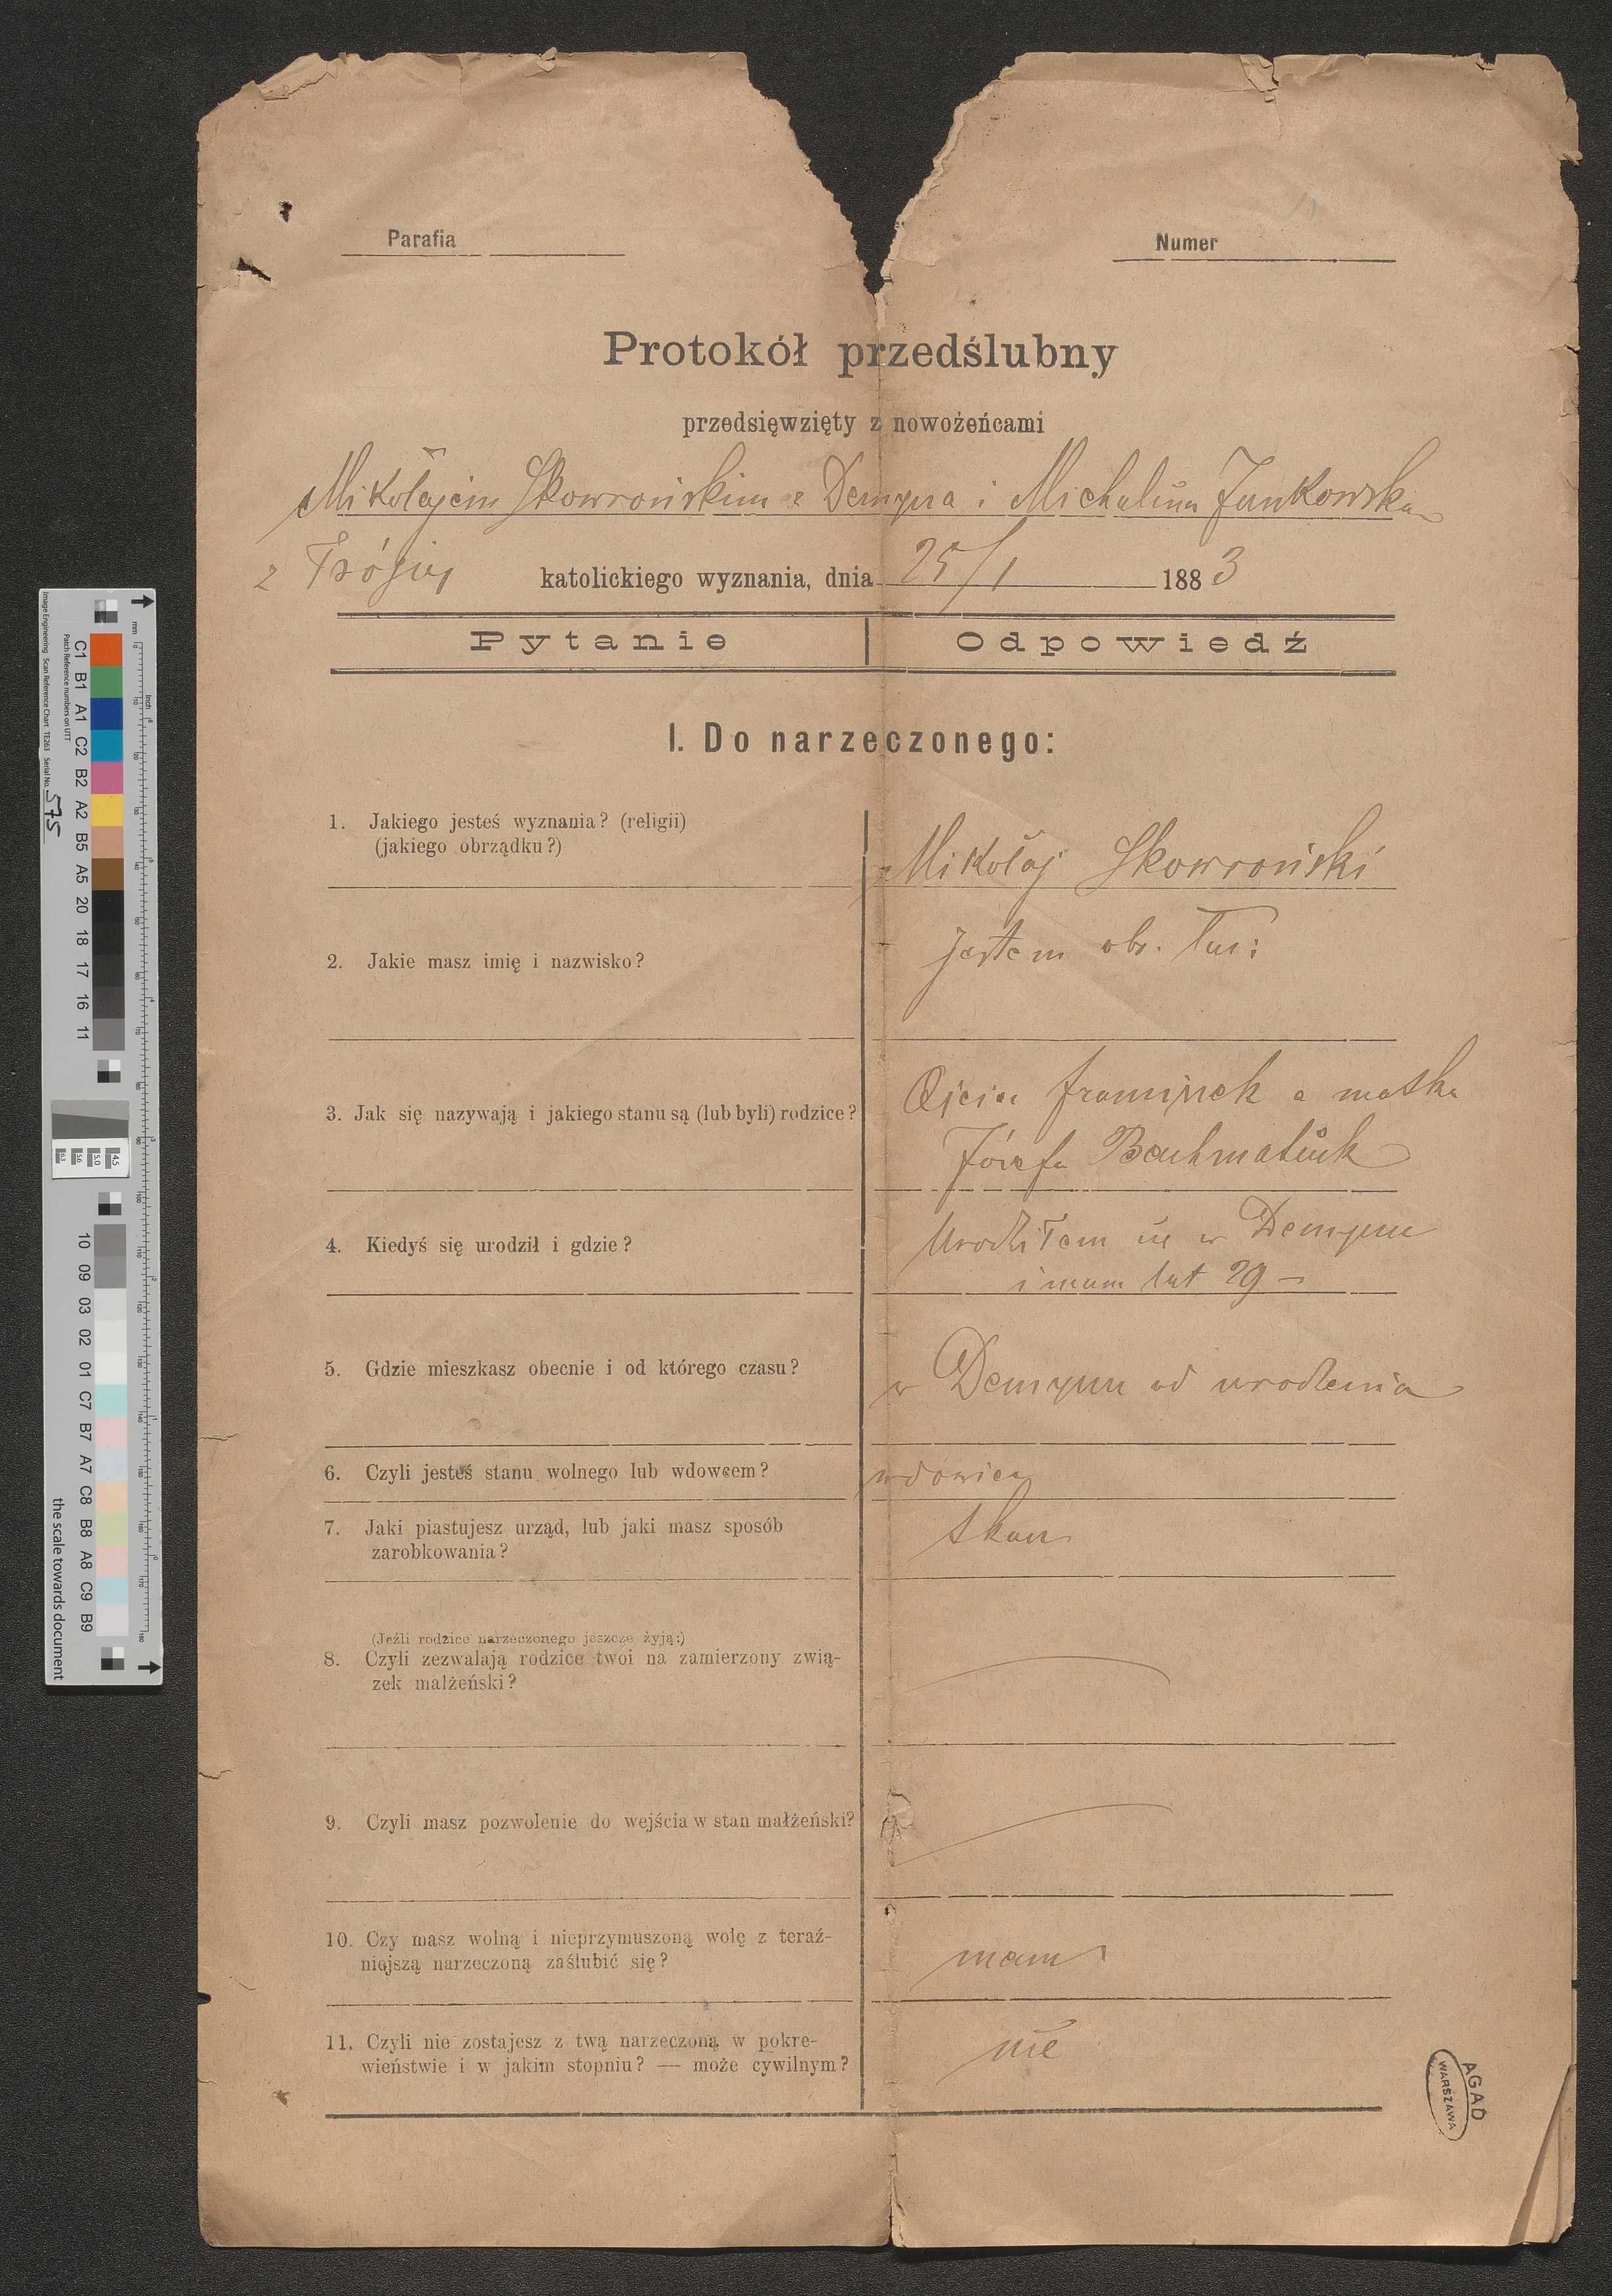 Parafia
Numer
Protokół przedślubny
przedsięwzięty z nowożeńcami
Mikołajem Skowrońskim z Demycza i Michaliną Jankowską
z Trójcy katolickiego wyznania, dnia 25/1 1883
Pytanie Odpowiedź
I. Do narzeczonego:
1. Jakiego jesteś wyznania? (religii)
(jakiego obrządku?)
Mikołaj Skowroński
2. Jakie masz imię i nazwisko?
jestem obr. łac:
3. Jak się nazywają i jakiego stanu są (lub byli) rodzice?
Ojciec Franciszek a matka
Józefa Bachmatiuk
4. Kiedyś się urodził i gdzie?
Urodziłem się w Demyczu
i mam lat 29 —
5. Gdzie mieszkasz obecnie i od którego czasu?
w Demyczu od urodzenia
6. Czyli jesteś stanu wolnego lub wdowcem?
wdowiec
7. Jaki piastujesz urząd, lub jaki masz sposób
zarobkowania?
tkacz
(Jeżli rodzice narzeczonego jeszcze żyją:)
8. Czyli zezwalają rodzice twoi na zamierzony zwią-
zek małżeński?
9. Czyli masz pozwolenie do wejścia w stan małżeński?
10. Czy masz wolną i nieprzymuszoną wolę z teraź-
niejszą narzeczoną zaślubić się?
mam
11. Czyli nie zostajesz z twą narzeczoną w pokre-
wieństwie i w jakim stopniu? — może cywilnym?
nie
AGAD
WARSZAWA
Image Engineering Scan Reference Chart TE263 Serial No. 575
Patch Reference numbers on UTT
mm
inch
C1 B1 A1 C2 B2 A2 B5 A5 20 18 17 16 11
10 09 03 02 01 C7 B7 A7 C8 B8 A8 C9 B9
the scale towards document